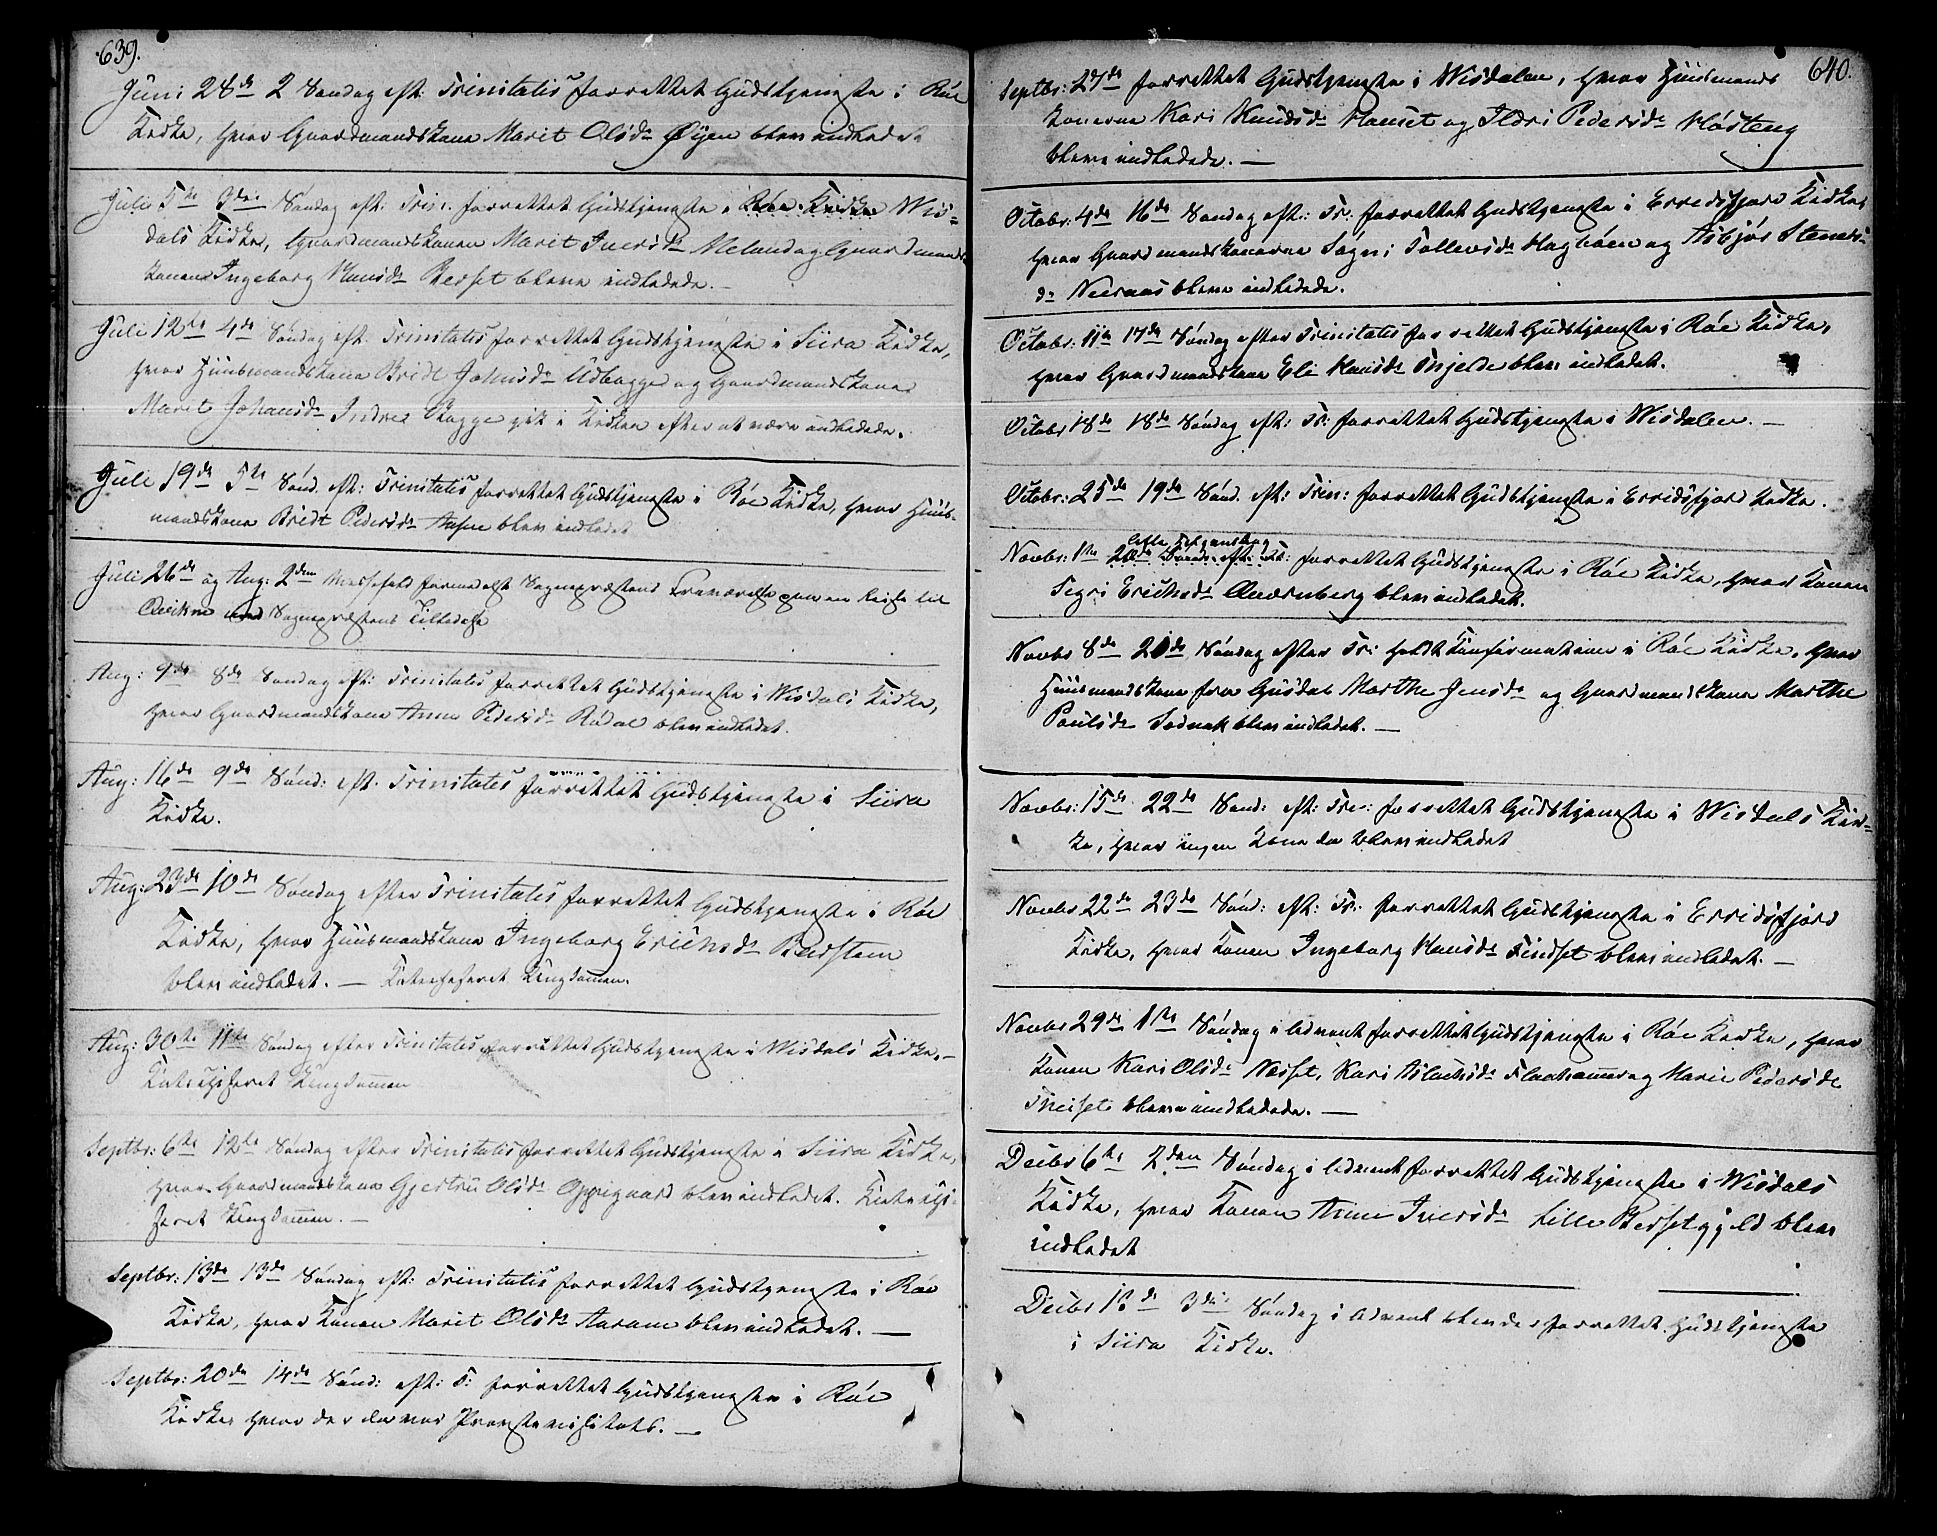 639.
Juni 28de 2 Søndag eft: Trinitatis forrettet Gudstjeneste i Røe
Kirke, hvor Gaardmandskone Marit Olsdr Øyen blev indledet
Juli 5te 3die Søndag eft: Trin: forrettet Gudstjeneste i Røe Kirke Wis-
dals Kirke, Gaardmandskonen Marit Iversdr Meland og Gaardmands-
konen Ingeborg Hansdr Berset bleve indledede. –
Juli 12te 4de Søndag eft. Trinitatis forrettet Gudstjeneste i Siira Kirke,
hvor Huusmandskone Bridt Johnsdr Udbogge og Gaardmandskone
Marit Johansdr Indre Bogge gik i Kirken efter at være indledede.
Juli 19de 5te Sønd. eft: Trinitatis forrettet Gudstjeneste i Røe Kirke, hvor Huus-
mandskone Bridt Pedersdr blev indledet
Juli 26de og Aug: 2den Messefald formedelst Sognepræstens Fraværelse paa en Reise til
Qvikne med Sognepræstens Tilladelse
Aug: 9de 8de Søndag eft: Trinitatis forrettet Gudstjeneste i Wisdals Kirke,
hvor Gaardmandskone Anne Pedersdr Rødal blev indledet.
Aug: 16de 9de Sønd: eft. Trinitatis forrettet Gudstjeneste i Siira
Kirke.
Aug: 23de 10de Søndag efter Trinitatis forrettet Gudstjeneste i Røe
Kirke, hvor Huusmandskone Ingeborg Erichsdr Berstøen
blev indledet. – Katechiseret Ungdommen.
Aug: 30te 11te Søndag efter Trinitatis forrettet Gudstjeneste i Wisdals Kirke. –
Katechiseret Ungdommen
Septbr: 6te 12te Søndag efter Trinitatis forrettet Gudstjeneste i Siira Kirke,
hvor Gaardmandskone Gjertru Olsdr Oppigaard blev indledet. Katechi-
seret Ungdommen. –
Septbr: 13de 13de Søndag eft: Trinitatis forrettet Gudstjeneste i Røe
Kirke, hvor Konen Marit Olsdr Aaram blev indledet. –
Septbr: 20de 14de Sønd: eft: T: forrettet Gudstjeneste i Røe
Kirke, hvor der da var Provstevisitats. –
640.
Septbr: 27de forrettet Gudstjeneste i Wisdalen, hvor Huusmands
konerne Kari Knudsdr Hanset og Ildri Pedersdr Høsteng
bleve indledede. –
Octobr: 4de 16de Søndag eft: Tr: forrettet Gudstjeneste i Erridsfjord Kirke,
hvor Gaardmandskonerne Søgni Tollevsdr Haghøen og Asbjør Steners-
dr Neeraas bleve indledede.
Octobr: 11te 17de Søndag efter Trinitatis forrettet Gudstjeneste i Røe Kirke,
hvor Gaardmandskone Eli Hansdr Tjelde blev indledet.
Octobr 18de 18de Søndag eft: Tr: forrettet Gudstjeneste i Wisdalen. –
Octobr: 25de 19de Sønd. eft: Trin: forrettet Gudstjeneste i Erridsfjord Kirke.
Alle Helgensdag
Novbr: 1te 20de Sønd: eft: Tr: forrettet Gudstjeneste i Røe Kirke, hvor Konen
Segri Erichsdr Qvernberg blev indledet.
Novbr 8de 21de Søndag efter Tr: holdt Confirmation i Røe Kirke, hvor
Huusmandskone fra Gusdal Marthe Jensdr og Gaardmandskone Marthe
Poulsdr Sodnak blev indledet. –
Novbr: 15de 22de Sønd: eft: Tr: forrettet Gudstjeneste i Wisdals Kir-
ke, hvor ingen Kone da blev indledet
Novbr 22de 23de Sønd: eft: Tr: forrettet Gudstjeneste i Erridsfjord
Kirke, hvor Konen Ingeborg Hansdr Findset blev indledet. –
Novbr 29de 1te Søndag i Advent forrettet Gudstjeneste i Røe Kirke, hvor
Konen Kari Olsdr Næsset, Kari Aslachsdr og Marie Pedersdr
bleve indledede. –
Decbr 6te 2den Søndag i Advent forrettet Gudstjeneste i Wisdals
Kirke, hvor Konen Anne Iversdr Lille Bersetgjeld blev
indledet
Decbr 13de 3die Søndag i Advent blev der forrettet Gudstjeneste
i Siira Kirke.